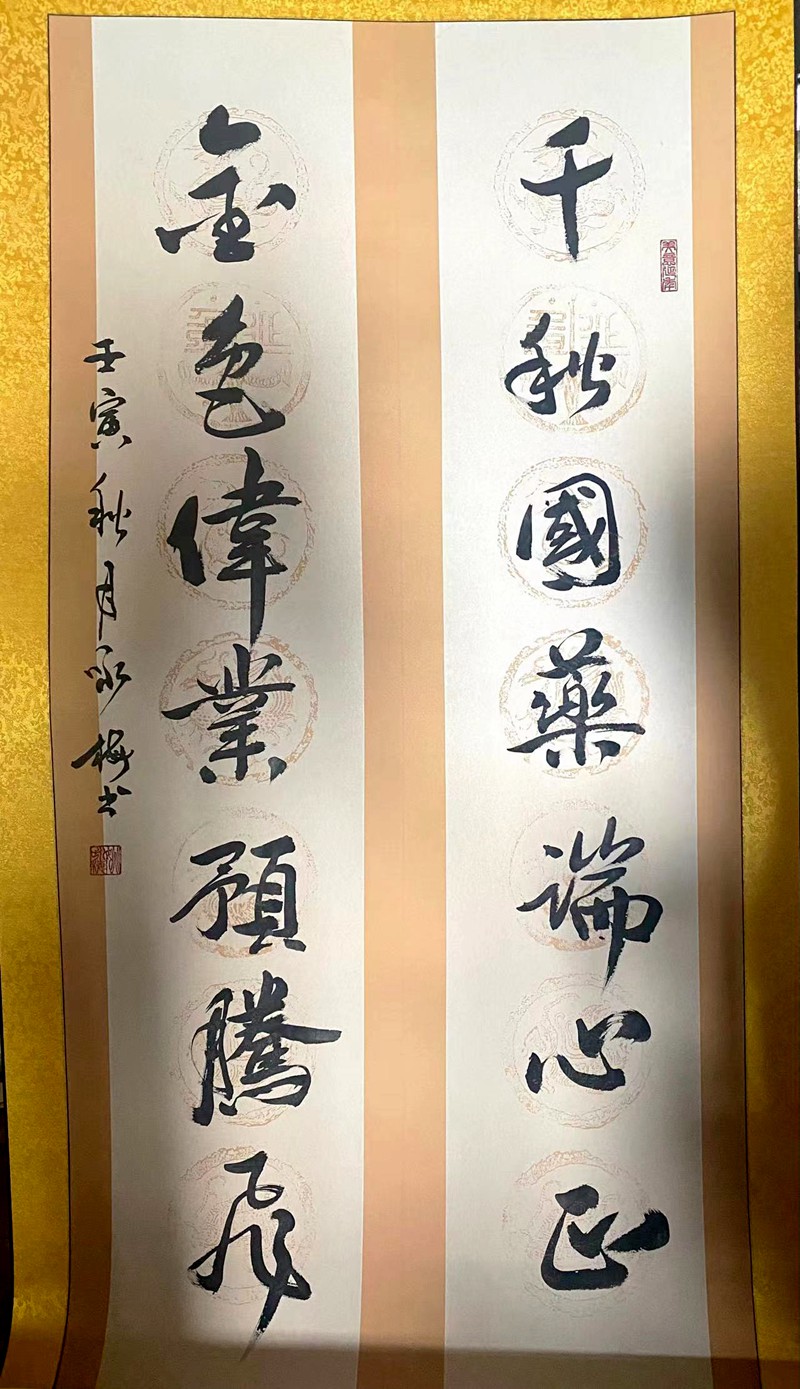 千秋國藥端心正
金色偉業預騰飛
壬寅秋月承梅书